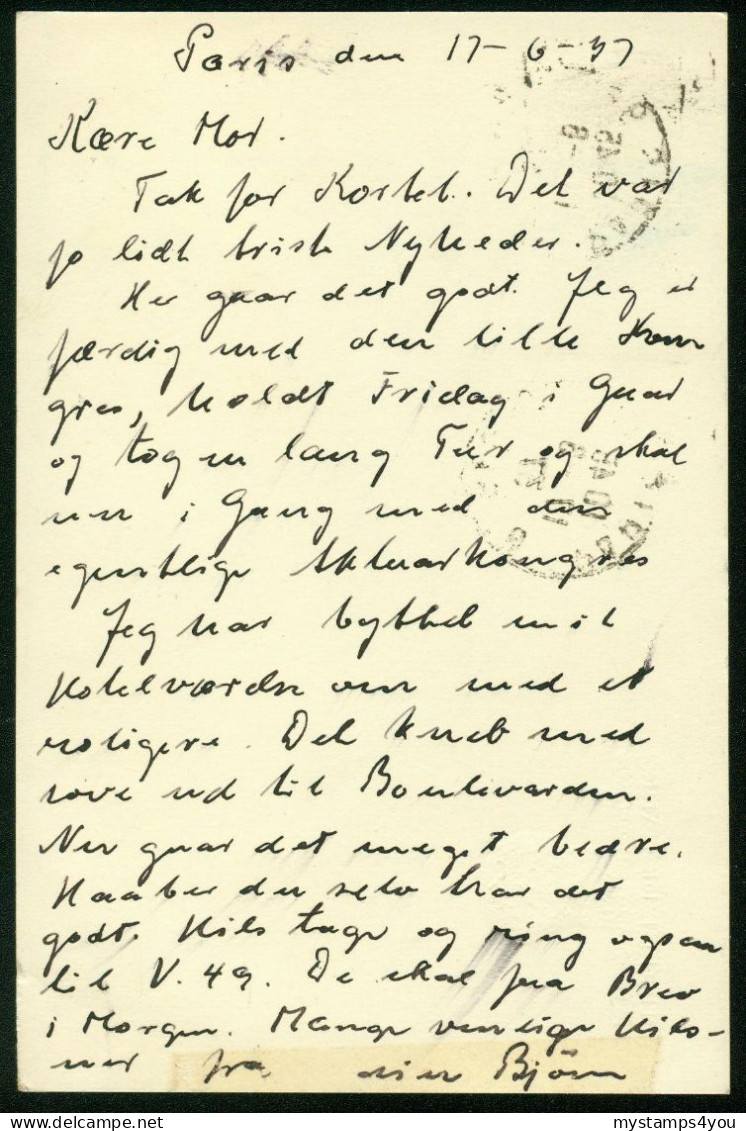 Paris den 17-6-37
Kære Mor.
Tak for Kortet. Det var
jo lidt trist Nyheder.
Her gaar det godt. Jeg er
færdig med den lille Kon
gres, holdt Fridag i Gaar
og tog en lang Tur og skal
nu i Gang med den
egentlige Aktuarkongres
Jeg har byttet mit
Hotelværelse om med et
roligere. Det kneb med
sove ud til Boulevarden.
Nu gaar det meget bedre.
Haaber du selv har det
godt. Hils Tage og ring ogsaa
til V. 49. De skal faa Brev
i Morgen. Mange venlige Hils-
ner fra din Björn
mystamps4you